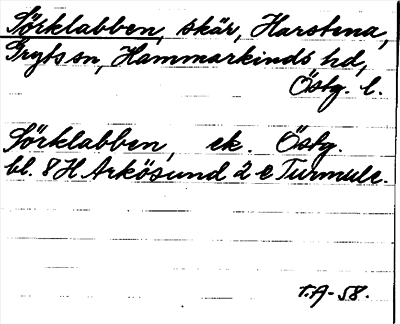 Sörklabben, skär, Harstena,
Gryts sn, Hammarkinds hd,
Östg. l.
Sörklabben, ek. Östg.
bl. 8 H Arkösund 2 e Turmulc.
T.A-58.